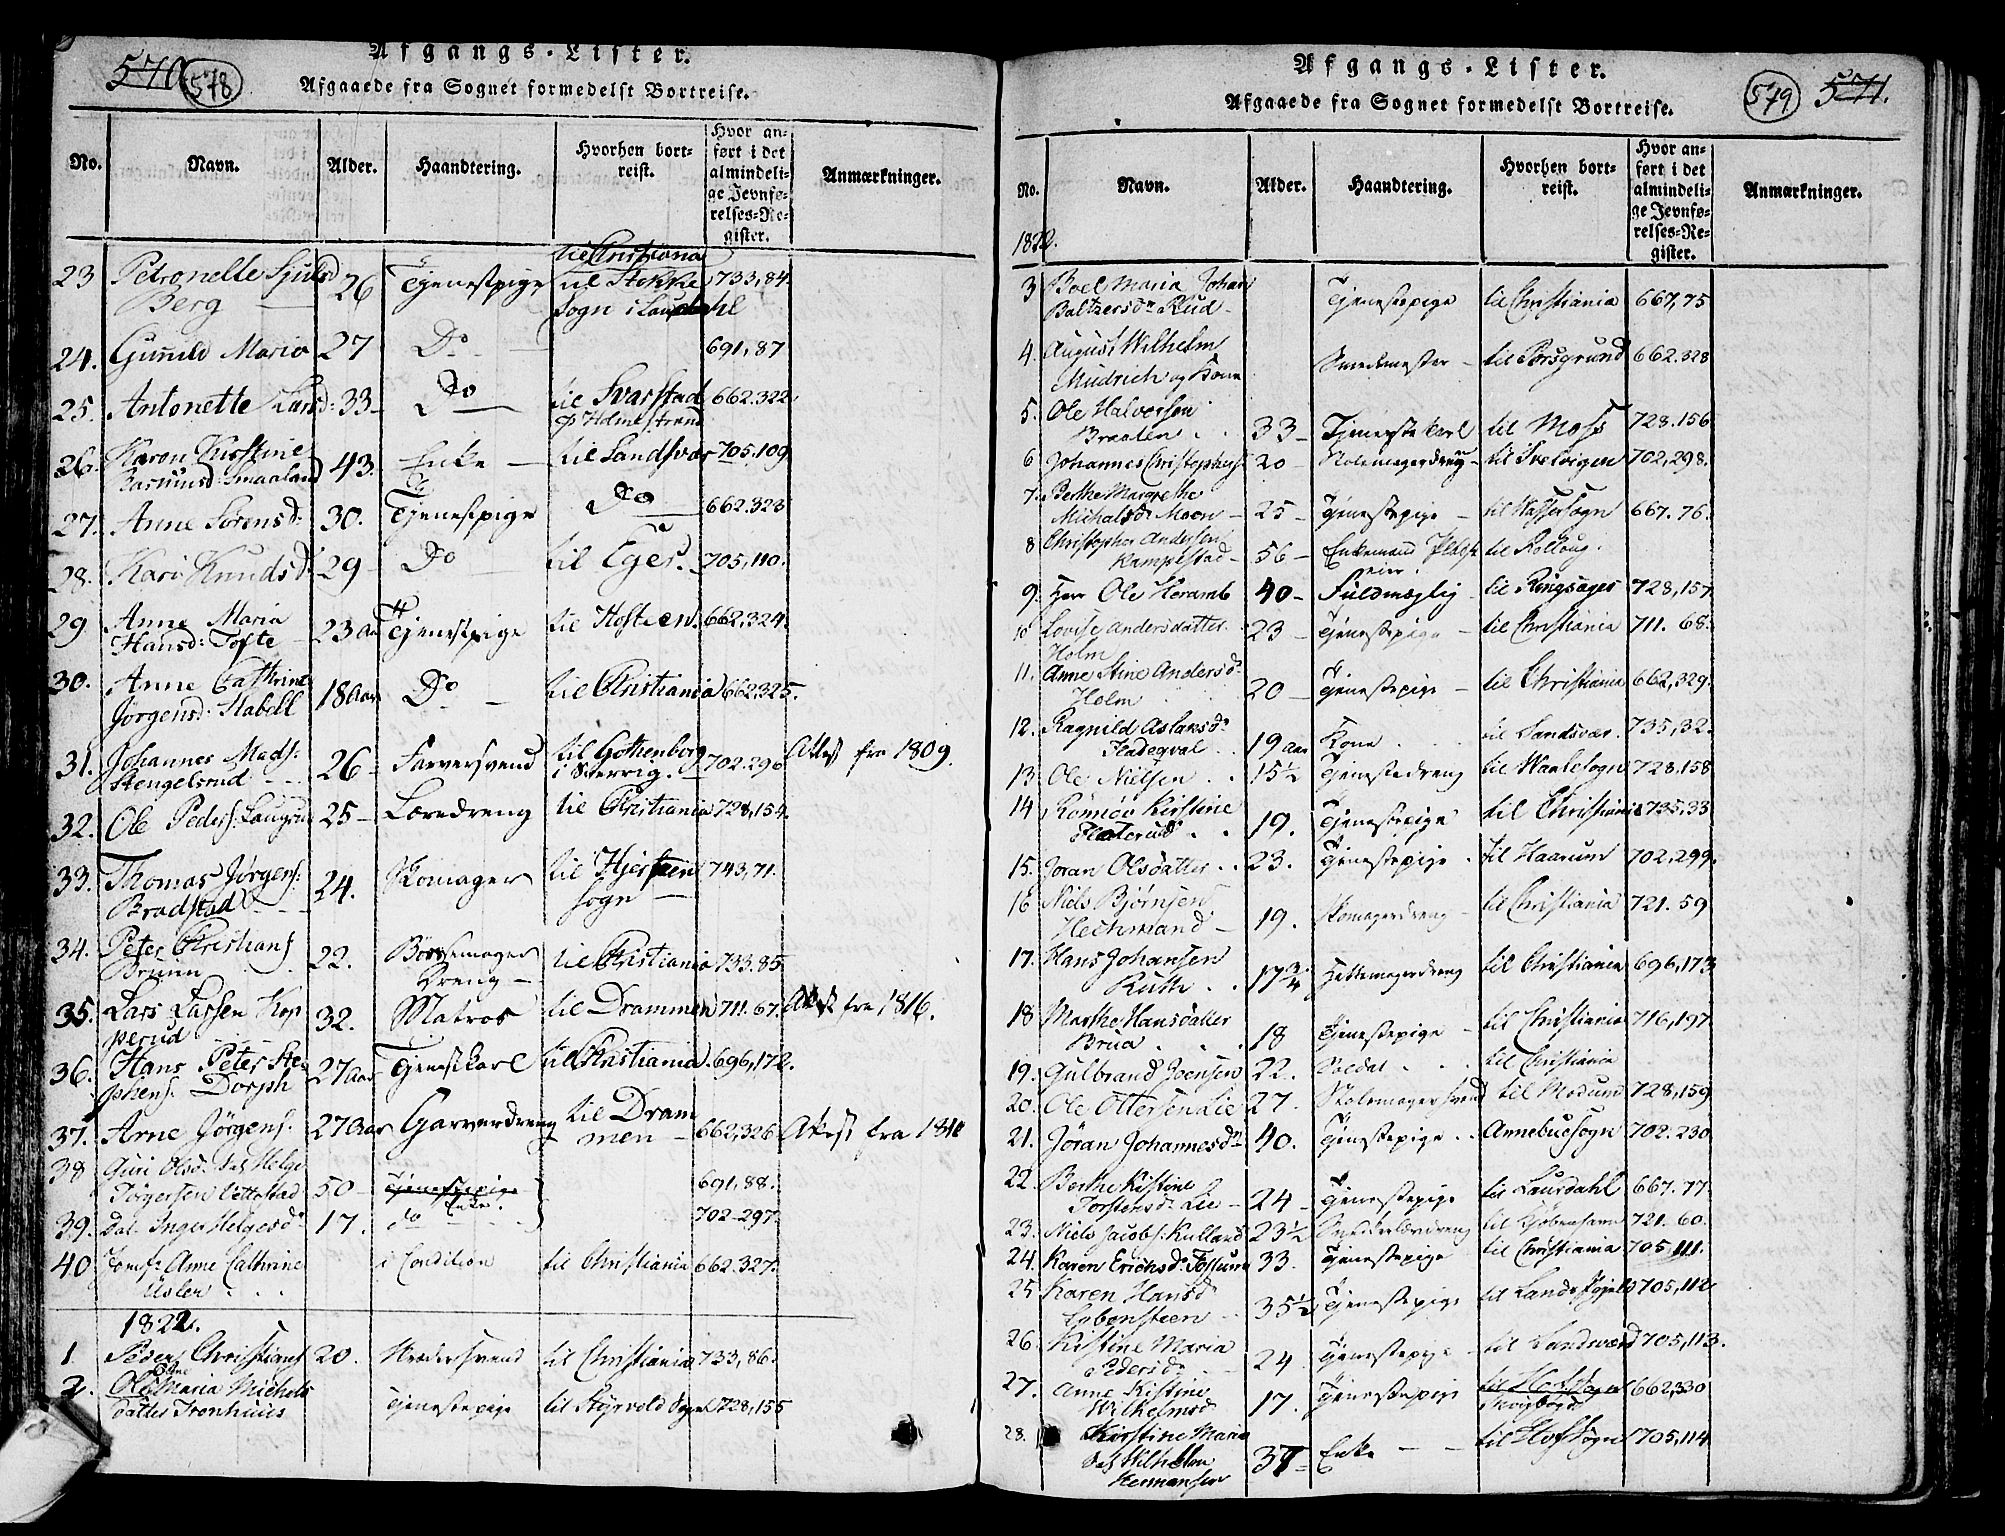 570 578
Afgangs-Lister.
Afgaaede fra Sognet formedelst Bortreise.
No. Navn. Alder. Haandtering. Hvorhen bortreist. Hvor anført i det almindelige Jevnførelses-Register. Anmærkninger.
23 Petronelle Berg 26 Tjenestpige til Christiania til Stokke Sogn i 733,84.
24. Gunild Maria 27 Do 691,87
25. Antonette Larsd: 33 Do til Svarstad p Holmestrand 662.322.
26. Karen Kirstine Rasmusd: Smaaland 43. Enke til Sandsvær 705.109
27. Anne Sörensd: 30. Tjenestpige Do 662.323
28. Kari Knudsd: 29 Do til Eger. 705,110.
29. Anne Maria Hansd: Tofte 23 Aar Tjenestpige til 662,324.
30. Anne Cathrine Jörgensd: Stabell 18 Aar Do til Christiania 662,325.
31. Johannes Mads: Stengelsrud 26 Farversvend til Gothenborg i Sverrig. 702.296 Attest fra 1809.
32. Ole Peders: 25 Læredreng til Christiania 728,154.
33. Thomas Jörgens: Bradstad 24. Skomager til sogn 743,71.
34. Peter Christians Bruun 22. Bössemager Dreng til Christiania 733.85
35. Lars Larsen Kopperud 32. Matros til Drammen 711.67. Attest fra 1816.
36. Hans Peter Stephens: Dorph 27 Aar Tjenestkarl til Christiania. 696,172.
37. Arne Jörgens: 27 Aar Garverdreng til Drammen 662,326 Attest fra 1810
38 Guri Olsd: Helge Törgersen 50 Tjenestepige Enke. 691,88.
39. Dat. Inger Helgesd 17. do 702-297.
40 Jomf: Anne Cathrine 1 Condition til Christiania 662.327.
1822.
1. Peder Christians 20. Svend til Christiania 733,86.
2. Ole Maria Michelsdatter Tronhuus Tjenestepige til 728,155
Afgangs-Lister. 579 571.
Afgaaede fra Sognet formedelst Bortreise.
No. Navn. Alder. Haandtering. Hvorhen bortreist. Hvor anført i det almindelige Jevnførelses-Register. Anmærkninger.
1822.
3 Boel Maria Johan Baltzersdr Rud Tjenestepige til Christiania 667,75
4. August Wilhelm Mudrich og Kone Smedmester til Porsgrund 662.328
5. Ole Halvorsen Braaten 33 Tjenestekarl til Moss 728.156
6 Johannes Christophers 20 Stolemagerdreng til Svelvigen 702,298.
7. Berthe Margrethe Michalsdr Moen 25 Tjenestepige til sogn 667.76.
8 Christopher Andersen 56 Enkemand til Rollaug.
9. Herr Ole Heramb 40 Fuldmægtig til Ringsager 728,157
10 Lovise Andersdatter Holm 23 Tjenestepige til Christiania 711. 68.
11. Anne Stine Andersdr Holm 20 Tjenestepige til Christiania 662,329.
12. Ragnild Aslaksdr 19 Aar Kone til Sandsvær. 735,32.
13. Ole Nielsen 15½ Tjenestedreng til Waalesogn 728.158
14 Kirstine 19. Tjenestepige til Christiania 735,33
15. Joran Olsdatter 23. Tjenestepige til Haarum 702,299.
16 Niels Björnsen 19. Skomagerdreng til Christiania 721.59
17. Hans Johansen Ruth 17¾ Hattemagerdreng til Christiania 696,173
18 Marthe Hansdatter Brua 18 Tjenestepige til Christiania 716,197.
19. Gulbrand Joensen 22. Soldat til Christiania
20. Ole Ottersen Lie 27. Stolemagersvend til Modum 728,159
21. Jöran Johannesdr 40. Tjenestepige Annebuesogn 702.230
22. Berthe Kistine Torstensdr Lie 24 Tjenestepige til Laurdahl 667.77
23. Niels Jacobs: Kulland 23½ til Kjöbenhavn 721.60.
24. Karen Erichsdr Fossum 33. Tjenestepige til Christiania 705,111.
25 Karen Hansdr 35½ Tjenestepige til 705,112
26. Kistine Maria Pedersdr 24 Tjenestepige til Sandsværd 705,113.
27. Anne Kistine Wilhelmsdr 17. Tjenestepige til 662,330
28. Kirstine Maria Wilhelm Hermansen 37 Enke til Hofsogn 705,114